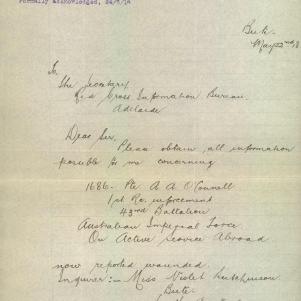 Formally acknowledged, 24/5/18
Bute
May 22nd 18
To
The Secretary
Red Cross Information Bureau
Adelaide
Dear Sir,
Please obtain all information
possible for me concerning
1686 - Pte A. A. O'Connell
1st Reinforcement
43rd Battalion
Australian Imperial Force
On Active Service Abroad
now reported wounded.
Inquirer:- Miss Violet Hutchinson
Bute